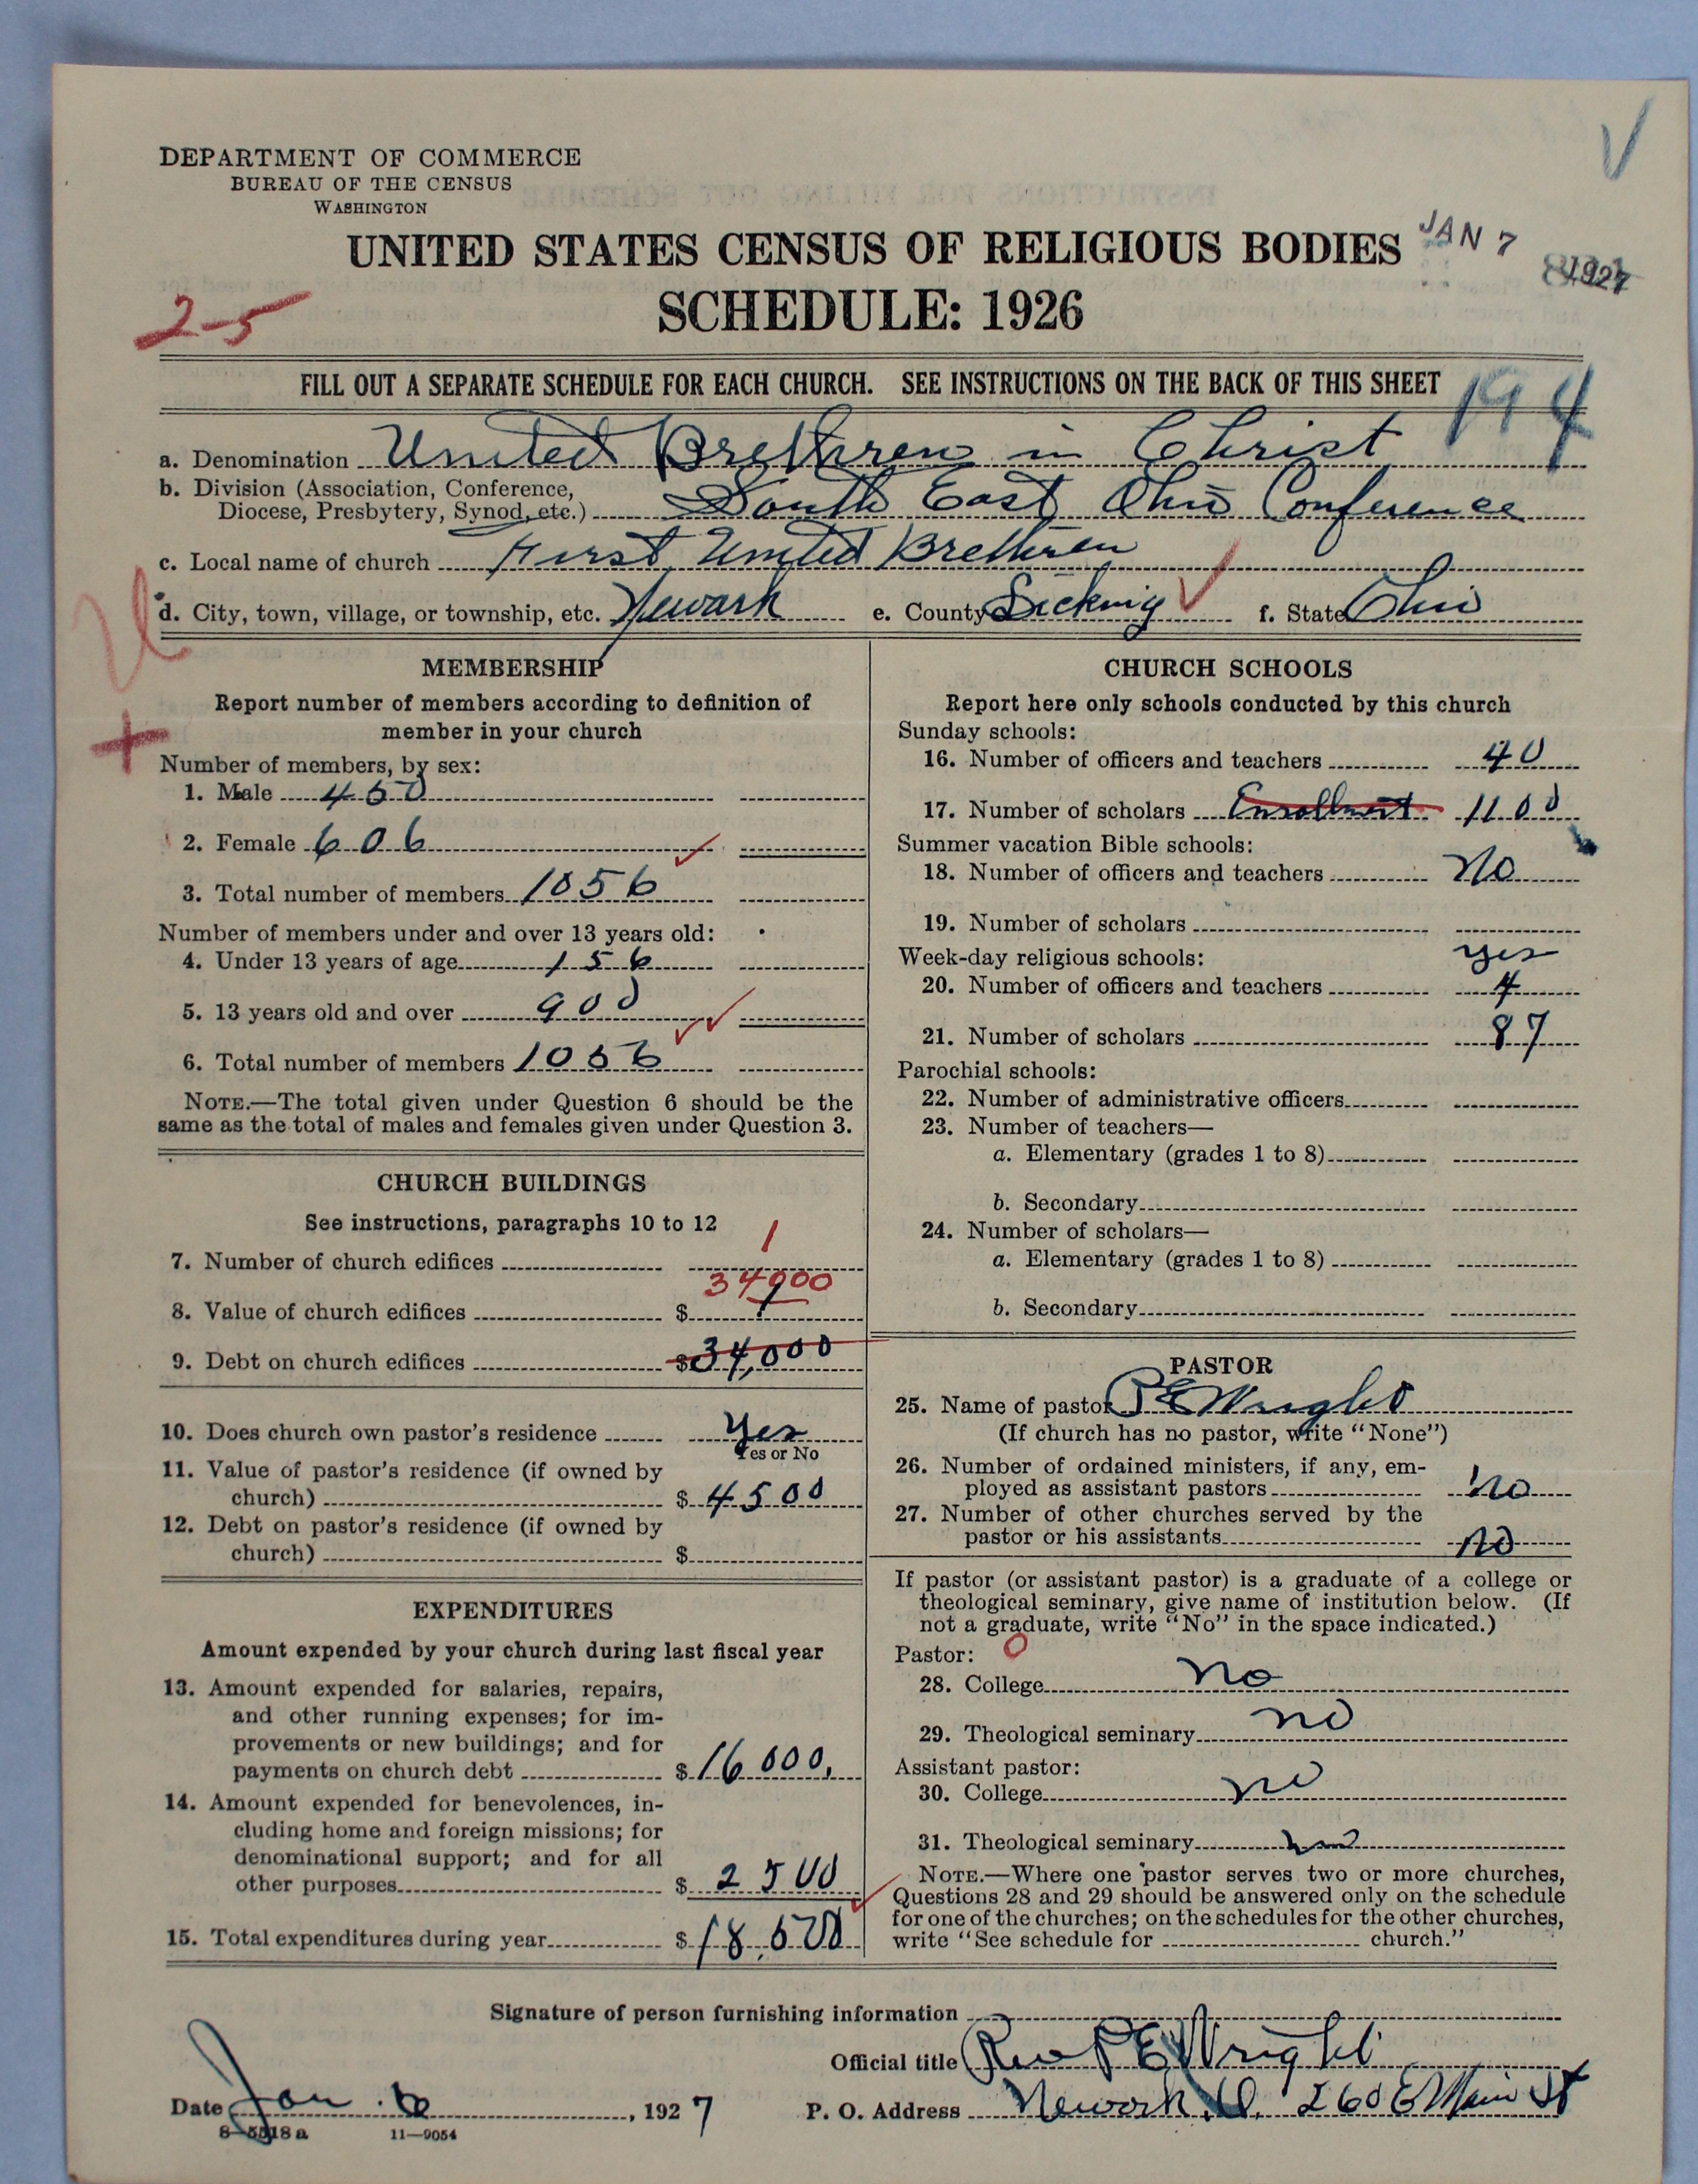 DEPARTMENT OF COMMERCE
BUREAU OF THE CENSUS
WASHINGTON
UNITED STATES CENSUS OF RELIGIOUS BODIES
JAN 7 1927
SCHEDULE: 1926
2-5
FILL OUT A SEPARATE SCHEDULE FOR EACH CHURCH. SEE INSTRUCTIONS ON THE BACK OF THIS SHEET
194
a. Denomination United Brethren in Christ
b. Division (Association, Conference,
Diocese, Presbytery, Synod, etc.) South East Ohio Conference
c. Local name of church First United Brethren
d. City, town, village, or township, etc. Newark e. County Licking f. State Ohio
MEMBERSHIP
Report number of members according to definition of
member in your church
Number of members, by sex:
1. Male 450
2. Female 606
3. Total number of members 1056
Number of members under and over 13 years old:
4. Under 13 years of age 156
5. 13 years old and over 900
6. Total number of members 1056
NOTE.—The total given under Question 6 should be the
same as the total of males and females given under Question 3.
CHURCH BUILDINGS
See instructions, paragraphs 10 to 12
7. Number of church edifices 1
34000
8. Value of church edifices $ 1
9. Debt on church edifices $34,000
10. Does church own pastor's residence Yes
Yes or No
11. Value of pastor's residence (if owned by
church) $ 4500
12. Debt on pastor's residence (if owned by
church) $
EXPENDITURES
Amount expended by your church during last fiscal year
13. Amount expended for salaries, repairs,
and other running expenses; for im-
provements or new buildings; and for
payments on church debt $ 16000.
14. Amount expended for benevolences, in-
cluding home and foreign missions; for
denominational support; and for all
other purposes $ 2500
15. Total expenditures during year $ 18,500
CHURCH SCHOOLS
Report here only schools conducted by this church
Sunday schools:
16. Number of officers and teachers 40
17. Number of scholars Enrollment 1100
Summer vacation Bible schools:
18. Number of officers and teachers No
19. Number of scholars
Week-day religious schools: yes
20. Number of officers and teachers 4
21. Number of scholars 87
Parochial schools:
22. Number of administrative officers
23. Number of teachers—
a. Elementary (grades 1 to 8)
b. Secondary
24. Number of scholars—
a. Elementary (grades 1 to 8)
b. Secondary
PASTOR
25. Name of pastor P E Wright
(If church has no pastor, write "None")
26. Number of ordained ministers, if any, em-
ployed as assistant pastors no
27. Number of other churches served by the
pastor or his assistants no
If pastor (or assistant pastor) is a graduate of a college or
theological seminary, give name of institution below. (If
not a graduate, write "No" in the space indicated.)
Pastor: 0
28. College no
29. Theological seminary no
Assistant pastor:
30. College no
31. Theological seminary no
NOTE.—Where one pastor serves two or more churches,
Questions 28 and 29 should be answered only on the schedule
for one of the churches; on the schedules for the other churches,
write "See schedule for church."
Signature of person furnishing information
Official title Rev P E Wright
Date Jan. 6, 1927 P. O. Address Newark, O. 260 E Main St
8—5518 a 11—9054